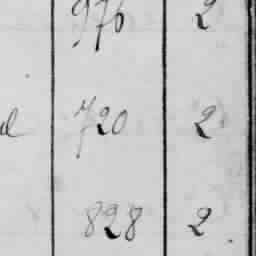 976 2
d 720 2
828 2.